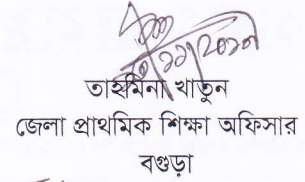 তাহমিনা খাতুন
জেলা প্রাথমিক শিক্ষা অফিসার
বগুড়া